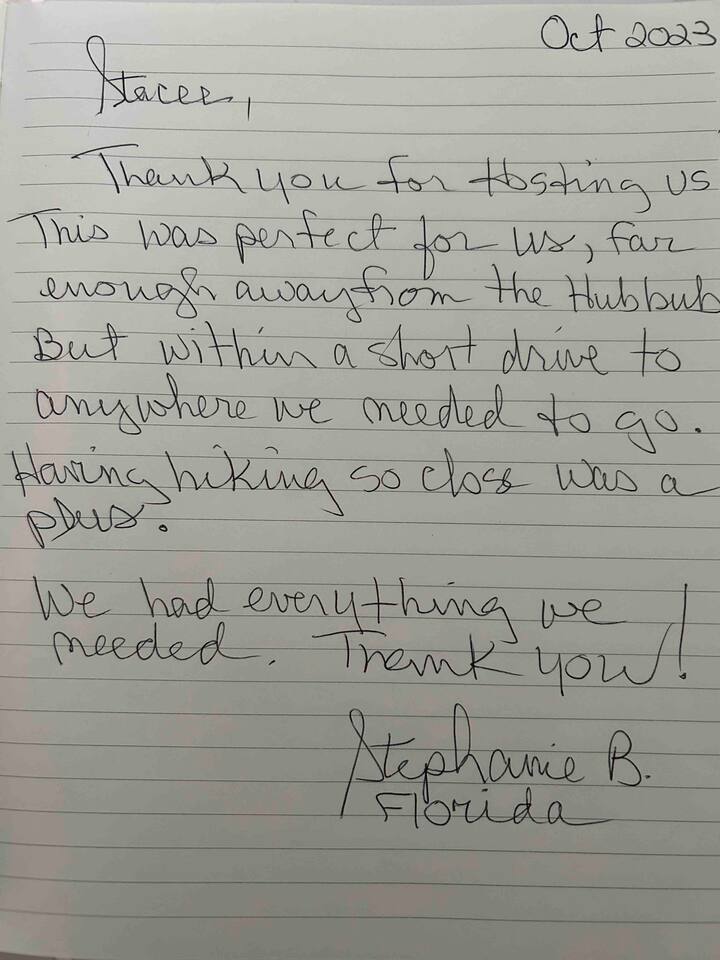 Oct 2023
Stacee,
Thank you for Hosting us
This was perfect for us, far
enough away from the Hubbub
But within a short drive to
anywhere we needed to go.
Having hiking so close was a
plus.
We had everything we
needed. Thank you!
Stephanie B.
Florida